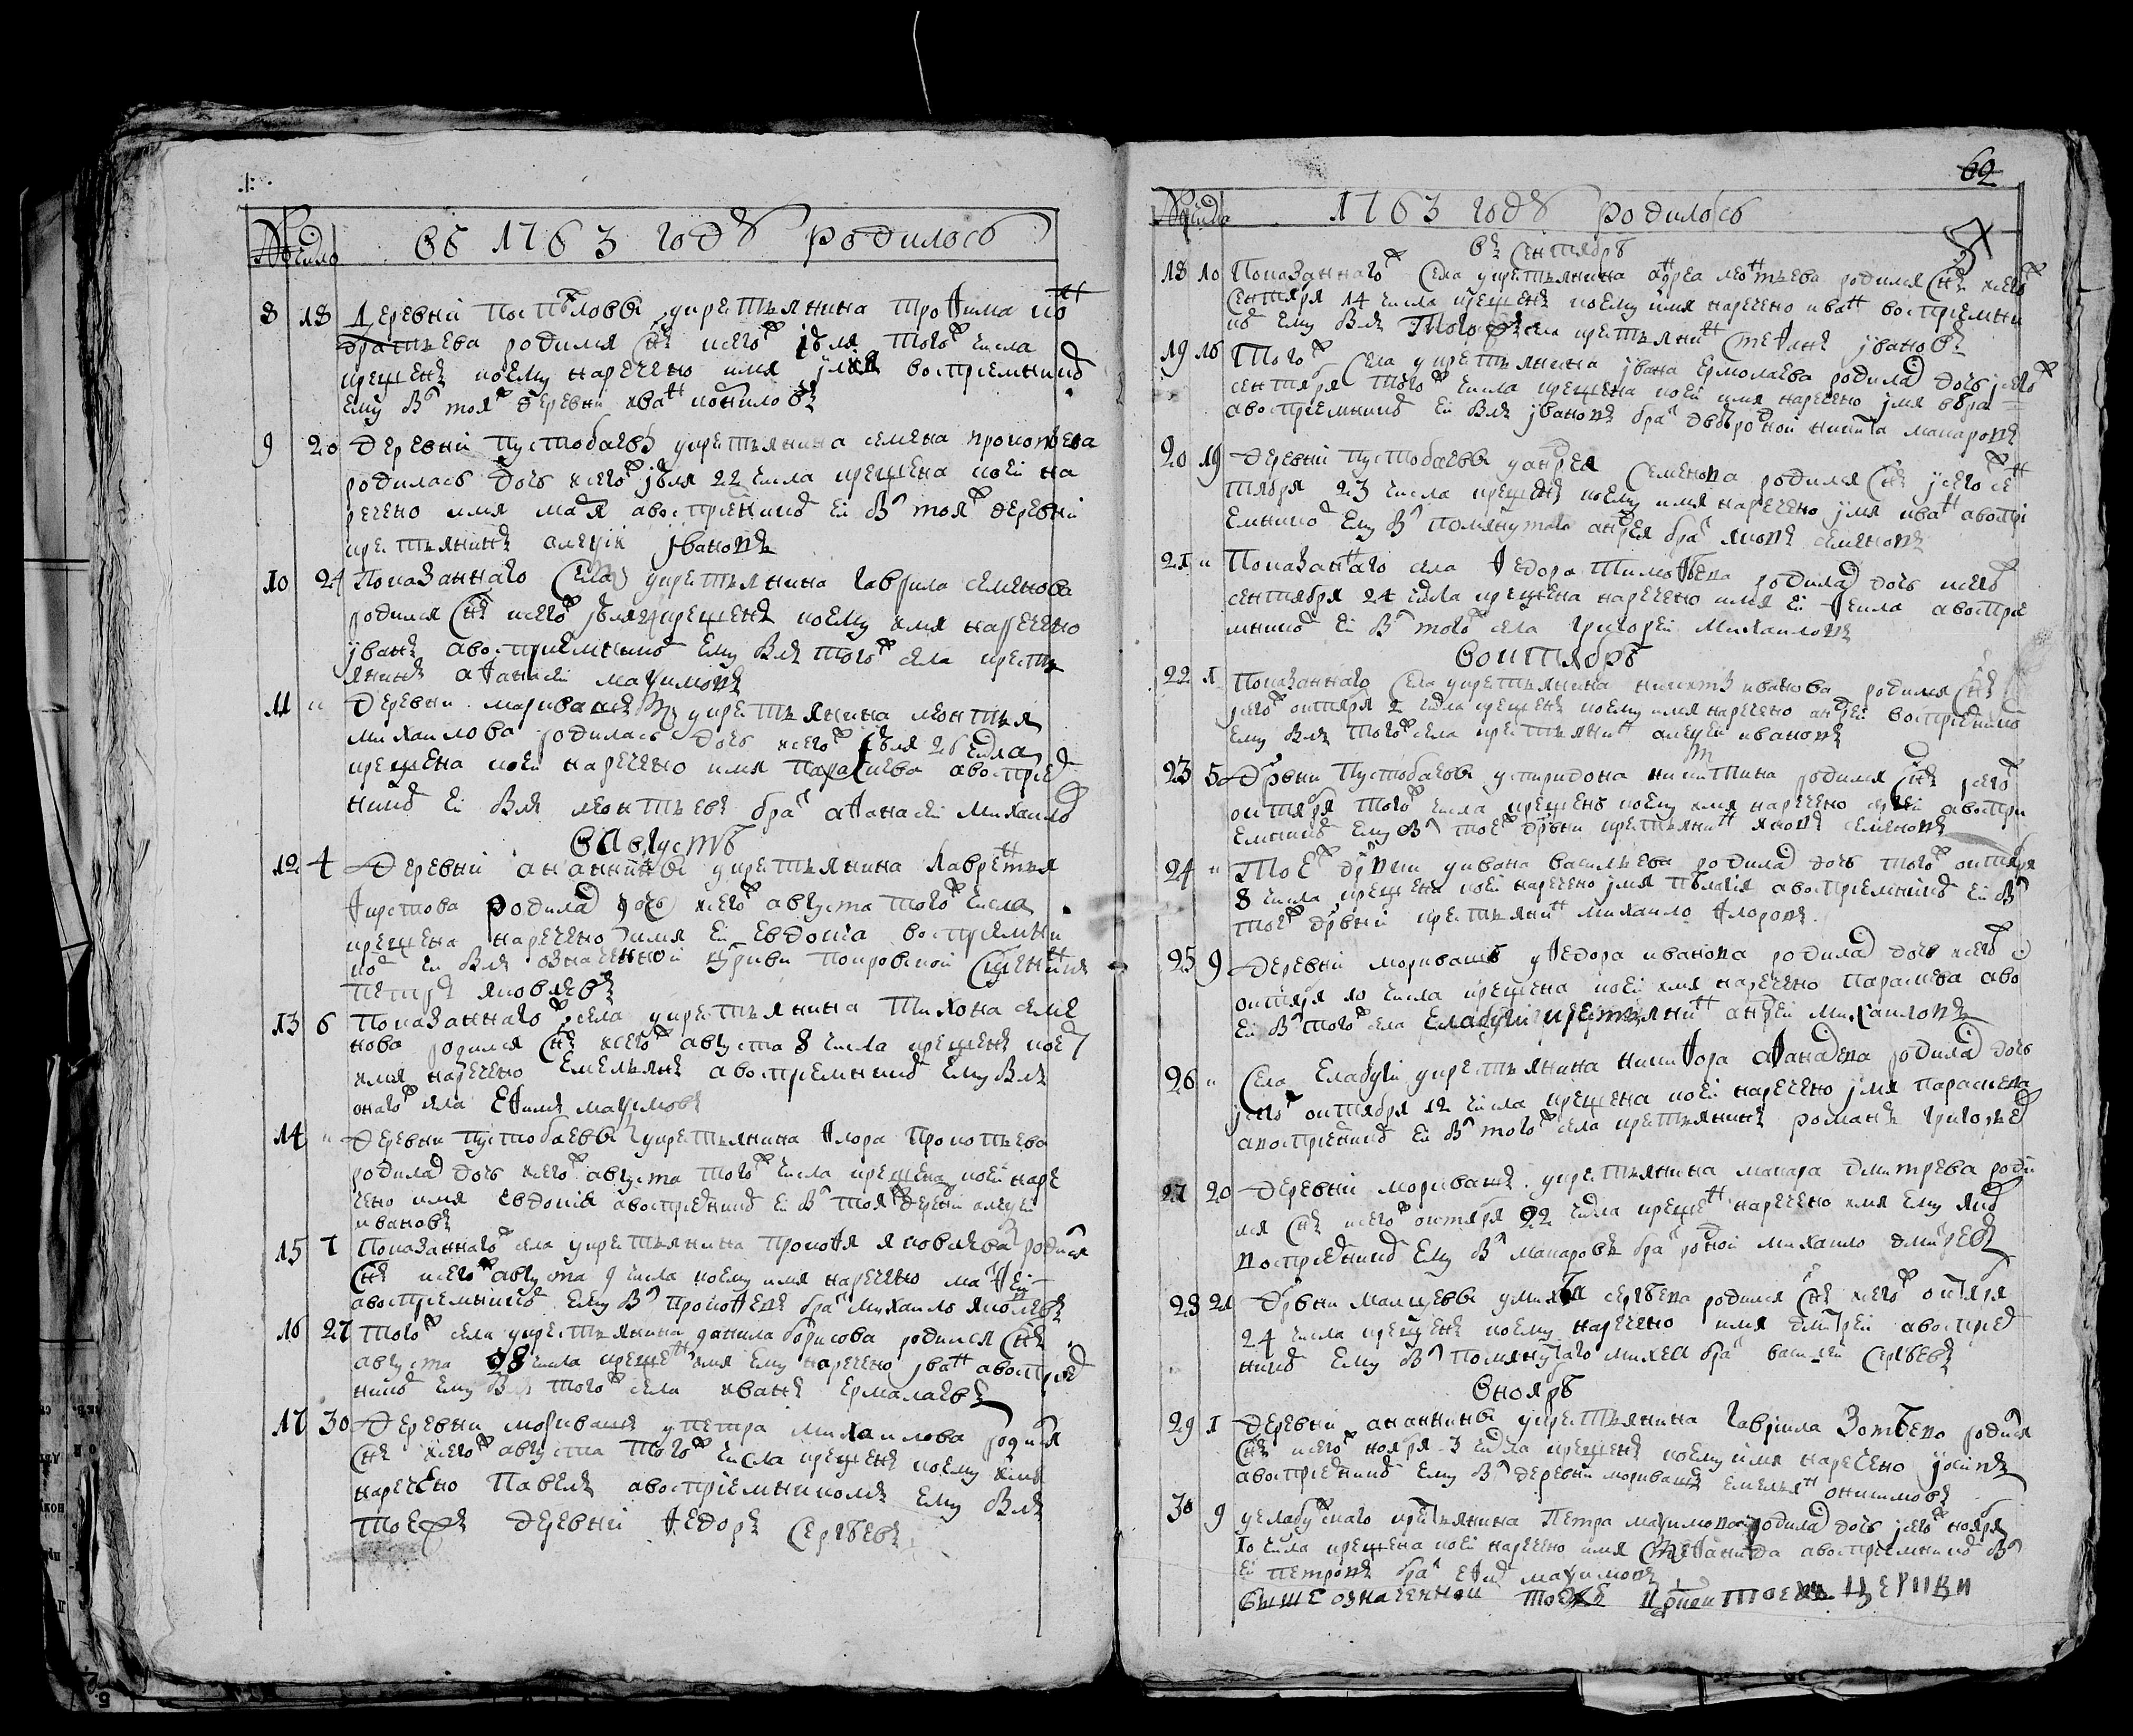 № число въ 1763 году родилось
8 18 Деревни крестьянина Трофима
родился снъ сего июля того числа
крещенъ коему наречено имя восприемникъ
ему былъ тоя деревни иванъ
9 20 Деревни Пустобаевы у крестьянина семена прокопьева
родилась дочь сего июля 22 числа крещена коей на
речено имя а восприемникъ ей былъ тояжъ деревни
крестьянинъ алеѯей ивановъ
10 24 Показанного села у крестьянина гаврила семенова
родился снъ сего июля крещенъ коему имя наречено
иванъ а восприемникъ ему былъ тогожъ села кресть
янинъ афанасей маѯимовъ
11 " Деревни моркваши у крестьянина леонтья
михаилова родилась дочь сего июля 26 числа
крещена коей наречено имя параскева а восприем
никъ ей былъ леонтьевъ братъ афанасей михаило
В Августѣ
12 4 Деревни ананьины у крестьянина лаврентья
фирстова родилась дочь сего августа того числа
крещена наречено имя ей евдокиа восприемни
къ ей былъ означенной церкви покровской священникъ
петръ яковлевъ
13 6 Показанного села у крестьянина Тихона семе
нова родился снъ сего августа 8 числа крещенъ коему
имя наречено Емельянъ а восприемникъ ему былъ
оного села Ефимъ маѯимовъ
14 " Деревни пустобаевы у крестьянина флора Прокопьева
родилась дочь сего августа того числа крещена коей наре
чено имя евдокия а восприемникъ ей былъ тояжъ дерени алеѯей
ивановъ
15 7 Показанного села у крестьянина прокофья яковлева родился
снъ сего августа 9 числа коему имя наречено матфей
а восприемникъ ему былъ прокофьевъ братъ михаило яковлевъ
16 27 Того села у крестьянина данила борисова родился снъ
августа 28 числа крещенъ имя ему наречено иванъ а восприем
никъ ему былъ того села иванъ Ермалаевъ
17 30 Деревни моркваши у петра михаилова родился
снъ сего августа того числа крещенъ коему имя
наречено Павелъ а восприемникомъ ему былъ
тоежъ деревни федоръ Сергѣевъ
62
№ число 1763 году родилось
Въ Сентябрѣ
18 10 Показанного села у крестьянина андрея леонтьева родился снъ сего
Сентября 14 числа крещенъ коему имя наречено иванъ восприемни
къ ему былъ Того села крестьянинъ Стефанъ ивановъ
19 16 Того села у крестьянина ивана Ермолаева родилась дочь сего
сентября того числа крещена коей имя наречено имя вѣра
а восприемникъ ей былъ ивановъ братъ двоюродной никита макаровъ
20 19 Деревни пустобаевы у андрея Семенова родился снъ сего сен
тября 23 числа крещенъ коему имя наречено имя иванъ а воспри
емникъ ему былъ помянутого андрея братъ яковъ семеновъ
21 " Показанного села федора Тимофѣева родилась дочь сего
сентября 24 числа крещена наречено имя ей фекла а восприе
мникъ ей былъ того села григорей михаиловъ
Воктябрѣ
22 1 Показанного села у крестьянина никиты иванова родился снъ
сего октября 2 числа крещенъ коему имя наречено андрей восприемникъ
ему былъ того села крестьянинъ алеѯей ивановъ
23 5 Дрвни Пустобаевы у спиридона никитина родился снъ сего
октября того числа крещенъ коему имя наречено сергей а воспри
емникъ ему былъ тоежъ дрвни крестьянинъ яковъ семеновъ
24 " Тоежъ дрвни у ивана васильева родилась дочь того октября
8 числа крещена коей наречено имя пелагия а восприемникъ ей былъ
тоежъ дрвни крестьянинъ михаило флоровъ
25 9 Деревни моркваши у федора иванова родилась дочь сего
октября 10 числа крещена коей имя наречено параскева а во
ей былъ того села Елабуги крестьянинъ андрей михаиловъ
26 " Села Елабуги у крестьянина никифора афанасева родилась дочь
сего октября 12 числа крещена коей наречено имя параскева
а восприемникъ ей былъ того села крестьянинъ романъ григорьев
27 20 Деревни моркваши у крестьянина макара дмитрева роди
лся снъ сего октября 22 числа крещенъ наречено имя ему яков
восприемникъ ему былъ макаровъ братъ родной михаило дмитревъ
28 21 Дрвни Малцевы у михея сергѣева родился снъ сего октября
24 числа крещенъ коему наречено имя дмитрей а восприем
никъ ему былъ помянутого михея братъ василей Сергѣевъ
В ноябрѣ
29 1 Деревни ананьины у крестьянина гаврила Зотѣева родился
снъ сего ноября 3 числа крещенъ коему имя наречено иакинвъ
а восприемникъ ему былъ деревни моркваши Емельянъ онисимовъ
30 9 у елабужского крестьянина петра маѯимова родилась дочь сего ноября
10 числа крещена коей наречено имя Стефанида а восприемникъ былъ
ей петровъ братъ Ефимъ маѯимовъ
Выше означенной тоежъ покровской церкви